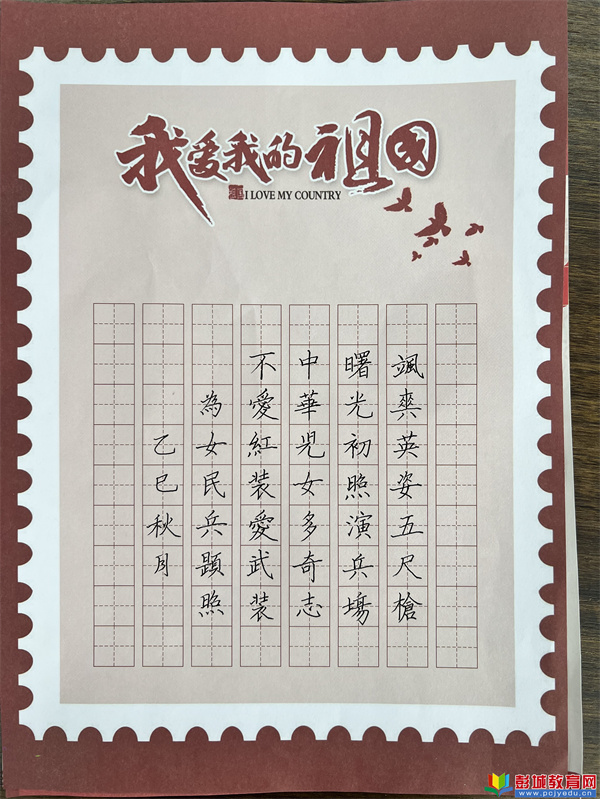 我爱我的祖国
I LOVE MY COUNTRY
颯爽英姿五尺槍
曙光初照演兵場
中華児女多奇志
不愛紅装愛武装
為女民兵題照
乙巳秋月
彭城教育网
www.pcjyedu.cn